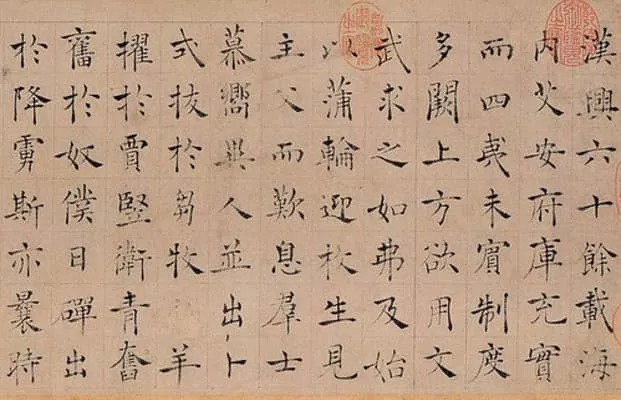 漢興六十餘載海
内艾安府庫充實
而四夷未賓制度
多闕上方欲用文
武求之如弗及始
以蒲輪迎枚生見
主父而歎息羣士
慕嚮異人並出卜
式拔於芻牧羊
擢於賈豎衛青奮
奮於奴僕日磾出
於降虜斯亦曩時